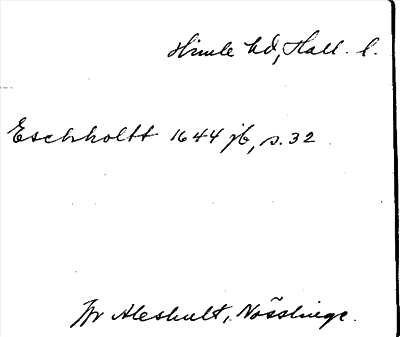 Himle hd, Hall. l.
Eschholtt 1644 jb, s. 32
Jfr Aleshult, Nösslinge.